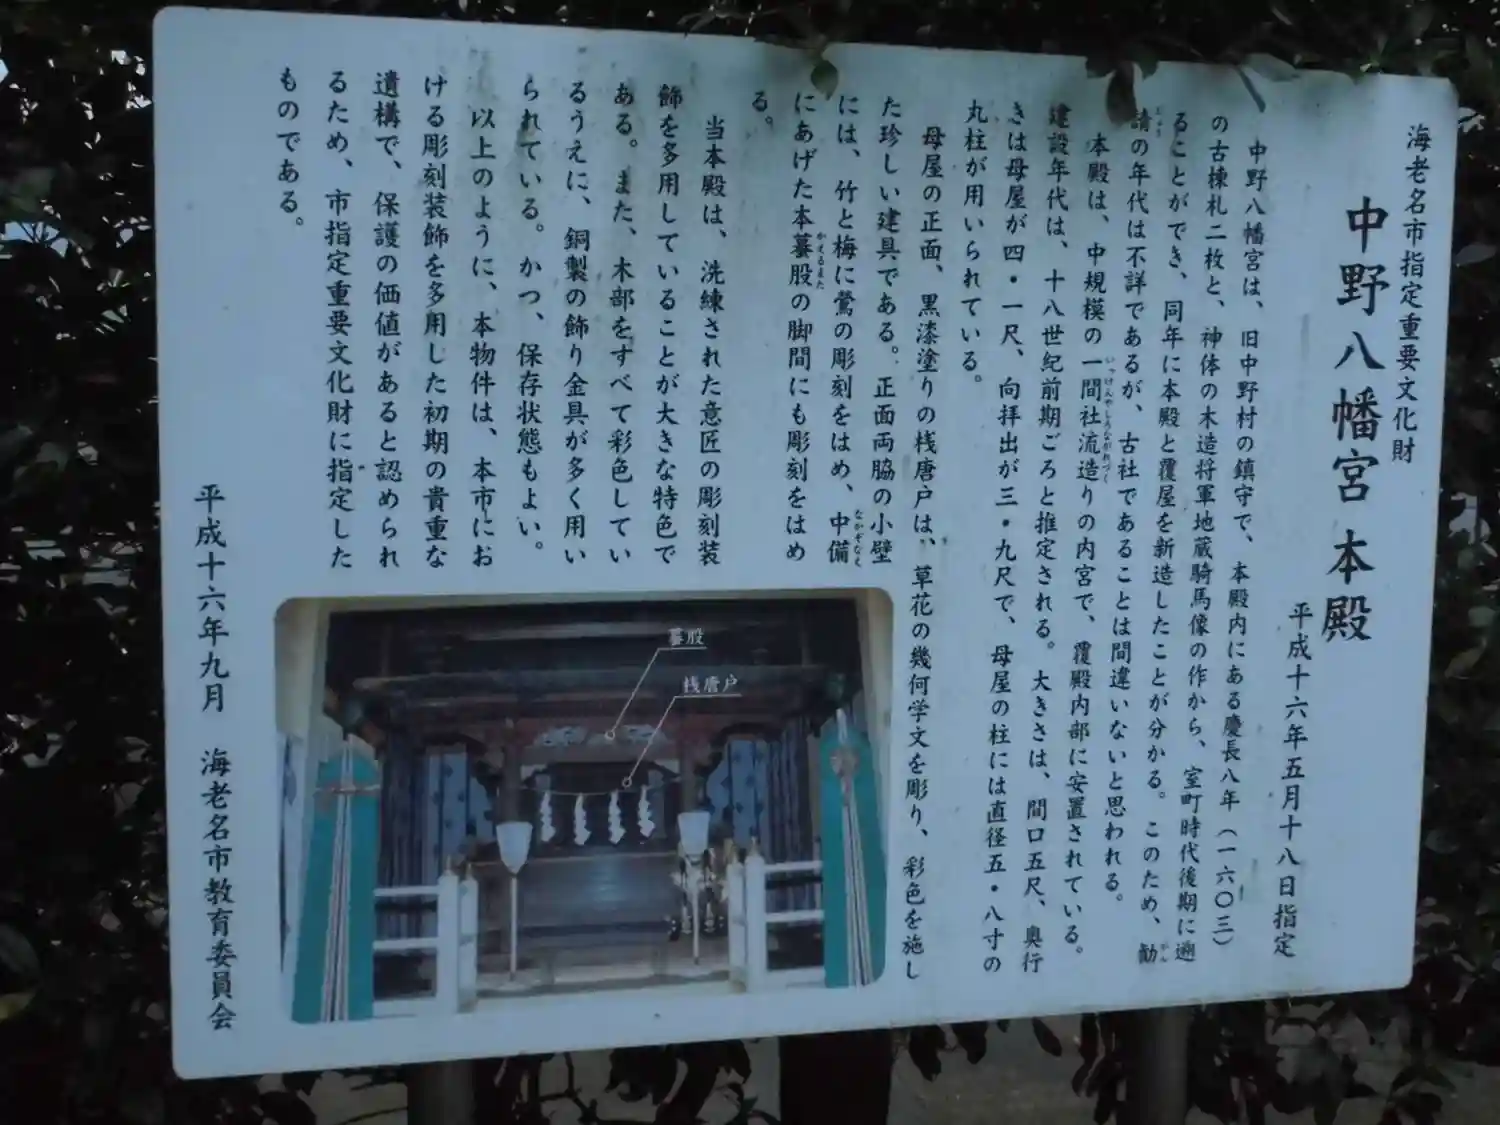 海老名市指定重要文化財
中野八幡宮本殿
平成十六年五月十八日指定
中野八幡宮は、旧中野村の鎮守で、本殿内にある慶長八年（一六〇三）
の古棟札二枚と、神体の木造将軍地蔵騎馬像の作から、室町時代後期に遡
ることができ、同年に本殿と覆屋を新造したことが分かる。このため、勧
請の年代は不詳であるが、古社であることは間違いないと思われる。
本殿は、中規模の一間社流造りの内宮で、覆殿内部に安置されている。
建設年代は、十八世紀前期ごろと推定される。大きさは、間口五尺、奥行
きは母屋が四・一尺、向拝出が三・九尺で、母屋の柱には直径五・八寸の
丸柱が用いられている。
母屋の正面、黒漆塗りの桟唐戸は、草花の幾何学文を彫り、彩色を施し
た珍しい建具である。正面両脇の小壁
には、竹と梅に鶯の彫刻をはめ、中備
にあげた本蟇股の脚間にも彫刻をはめ
る。
当本殿は、洗練された意匠の彫刻装
飾を多用していることが大きな特色で
ある。また、木部をすべて彩色してい
るうえに、銅製の飾り金具が多く用い
られている。かつ、保存状態もよい。
以上のように、本物件は、本市にお
ける彫刻装飾を多用した初期の貴重な
遺構で、保護の価値があると認められ
るため、市指定重要文化財に指定した
ものである。
蟇股
桟唐戸
平成十六年九月　海老名市教育委員会